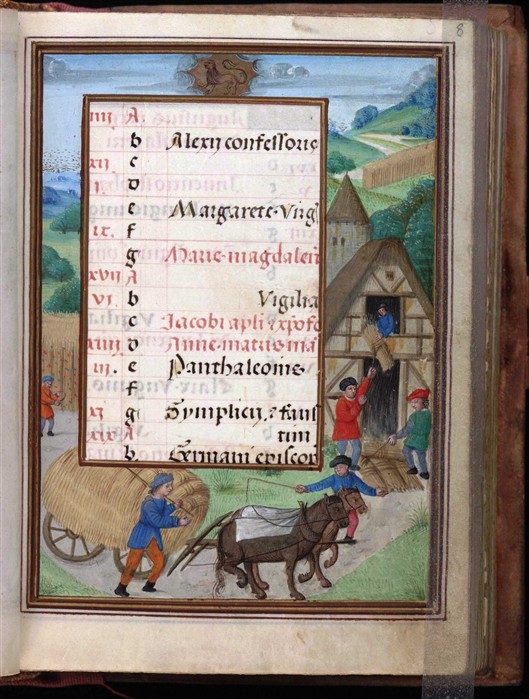 8
iiij A.
b Alexij confessoris
xij c
i. D
e Margarete. Virg
ix. f
g Marie. magdalen
xvij A
vi. b Vigilia
c Jacobi apli xpofo
xiiij D Anne. matris ma
iij. e Panthaleonis.
f
xj g Symplicij, faus
xix A tini
b Germani episcop